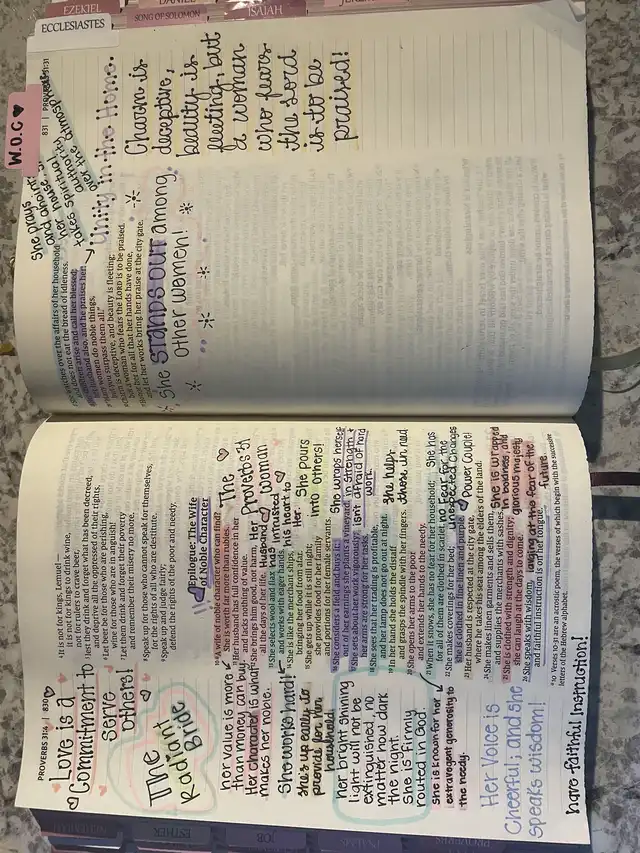 PROVERBS 31:4 | 830
Love is a
Commitment to
serve
others!
The
Radiant
Bride
her value is more
than money can buy
Her character is what
makes her noble.
She works hard!
she's up early to
provide for her
household
her bright shining
light will not be
extinguished, no
matter how dark
the night.
She is firmly
rooted in God
she is known for her
extravagent generosity to
the needy.
Her Voice is
Cheerful; and she
speaks wisdom!
have faithful instruction!
4 It is not for kings, Lemuel—
it is not for kings to drink wine,
not for rulers to crave beer,
5 lest they drink and forget what has been decreed,
and deprive all the oppressed of their rights.
6 Let beer be for those who are perishing,
wine for those who are in anguish!
7 Let them drink and forget their poverty
and remember their misery no more.
8 Speak up for those who cannot speak for themselves,
for the rights of all who are destitute.
9 Speak up and judge fairly;
defend the rights of the poor and needy.
Epilogue: The Wife
of Noble Character
10 A wife of noble character who can find?
She is worth far more than rubies.
11 Her husband has full confidence in her
and lacks nothing of value.
12 She brings him good, not harm,
all the days of her life.
13 She selects wool and flax
and works with eager hands.
14 She is like the merchant ships,
bringing her food from afar.
15 She gets up while it is still night;
she provides food for her family
and portions for her female servants.
16 She considers a field and buys it;
out of her earnings she plants a vineyard.
17 She sets about her work vigorously;
her arms are strong for her tasks.
18 She sees that her trading is profitable,
and her lamp does not go out at night.
19 In her hand she holds the distaff
and grasps the spindle with her fingers.
20 She opens her arms to the poor
and extends her hands to the needy.
21 When it snows, she has no fear for her household;
for all of them are clothed in scarlet.
22 She makes coverings for her bed;
she is clothed in fine linen and purple.
23 Her husband is respected at the city gate,
where he takes his seat among the elders of the land.
24 She makes linen garments and sells them,
and supplies the merchants with sashes.
25 She is clothed with strength and dignity;
she can laugh at the days to come.
26 She speaks with wisdom,
and faithful instruction is on her tongue.
The
Proverbs 31
woman
Her
Husband
has intrusted
his heart to
Her.
She pours
into others!
She wraps herself
in strength &
isn't afraid of hard
work.
she helps
those in need
She has
no fear for the
unexpected changes
Power Couple!
She is wrapped
in boldness and
glorious majesty
laughing at the fear of the
future.
*10 Verses 10-31 are an acrostic poem, the verses of which begin with the successive
letters of the Hebrew alphabet.
831 | PROVERBS 31:31
She prays
her house
takes spiritual
authority
over the atmosphere
watches over the affairs of her household
and does not eat the bread of idleness.
children arise and call her blessed;
husband also, and he praises her:
women do noble things,
but you surpass them all."
Charm is deceptive, and beauty is fleeting;
but a woman who fears the LORD is to be praised.
Honor her for all that her hands have done,
and let her works bring her praise at the city gate.
Unity in the Home.
She STANDS OUT among
other women!
Charm is
deceptive,
beauty is
fleeting, but
a woman
who fears
the Lord
is to be
praised!
W.O.G
ECCLESIASTES
SONG OF SOLOMON
ISAIAH
EZEKIEL
DANIEL
ESTHER
JOB
PSALMS
PROVERBS